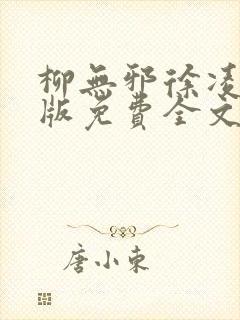 柳無邪徐凌
版免費全文
唐小東